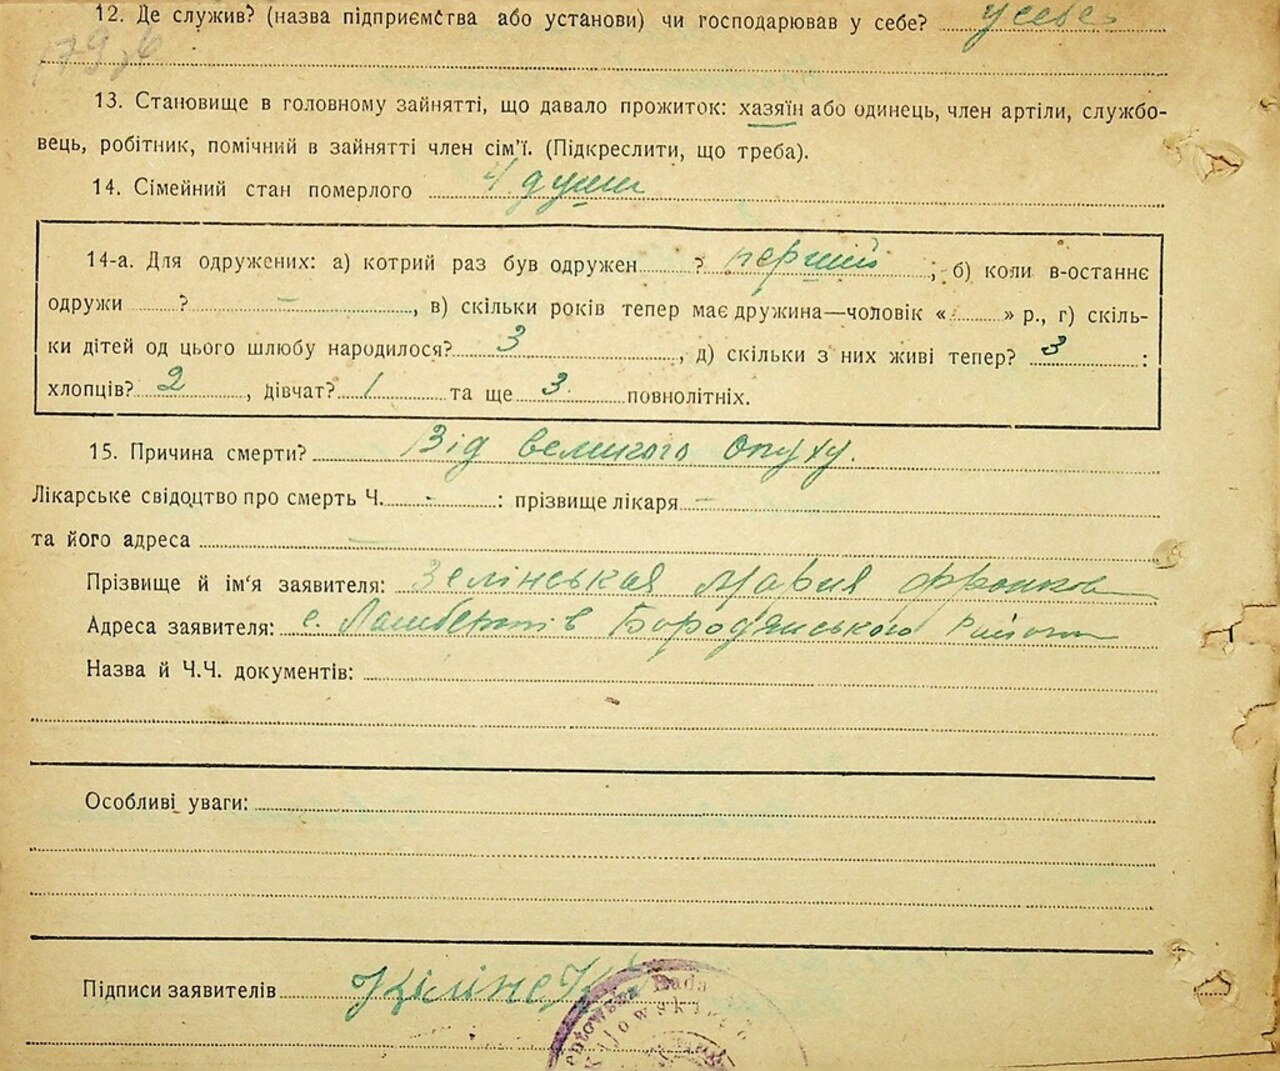 12. Де служив? (назва підприємства або установи) чи господарював у себе? у себе
179
13. Становище в головному зайнятті, що давало прожиток: хазяїн або одинець, член артіли, службо-
вець, робітник, помічний в зайнятті член сім'ї. (Підкреслити, що треба).
14. Сімейний стан померлого 4 души
14-а. Для одружених: а) котрий раз був одружен ? перший ; б) коли в-останнє
одружи ? – , в) скільки років тепер має дружина—чоловік « » р., г) скіль-
ки дітей од цього шлюбу народилося? 3 , д) скільки з них живі тепер? 3 :
хлопців? 2 , дівчат? 1 та ще 3 повнолітніх.
15. Причина смерти? Від великого опуху.
Лікарське свідоцтво про смерть Ч. - : прізвище лікаря –
та його адреса –
Прізвище й ім'я заявителя: Зелінськая Мария
Адреса заявителя: с. Бородянського
Назва й Ч.Ч. документів:
Особливі уваги:
Підписи заявителів
Rada